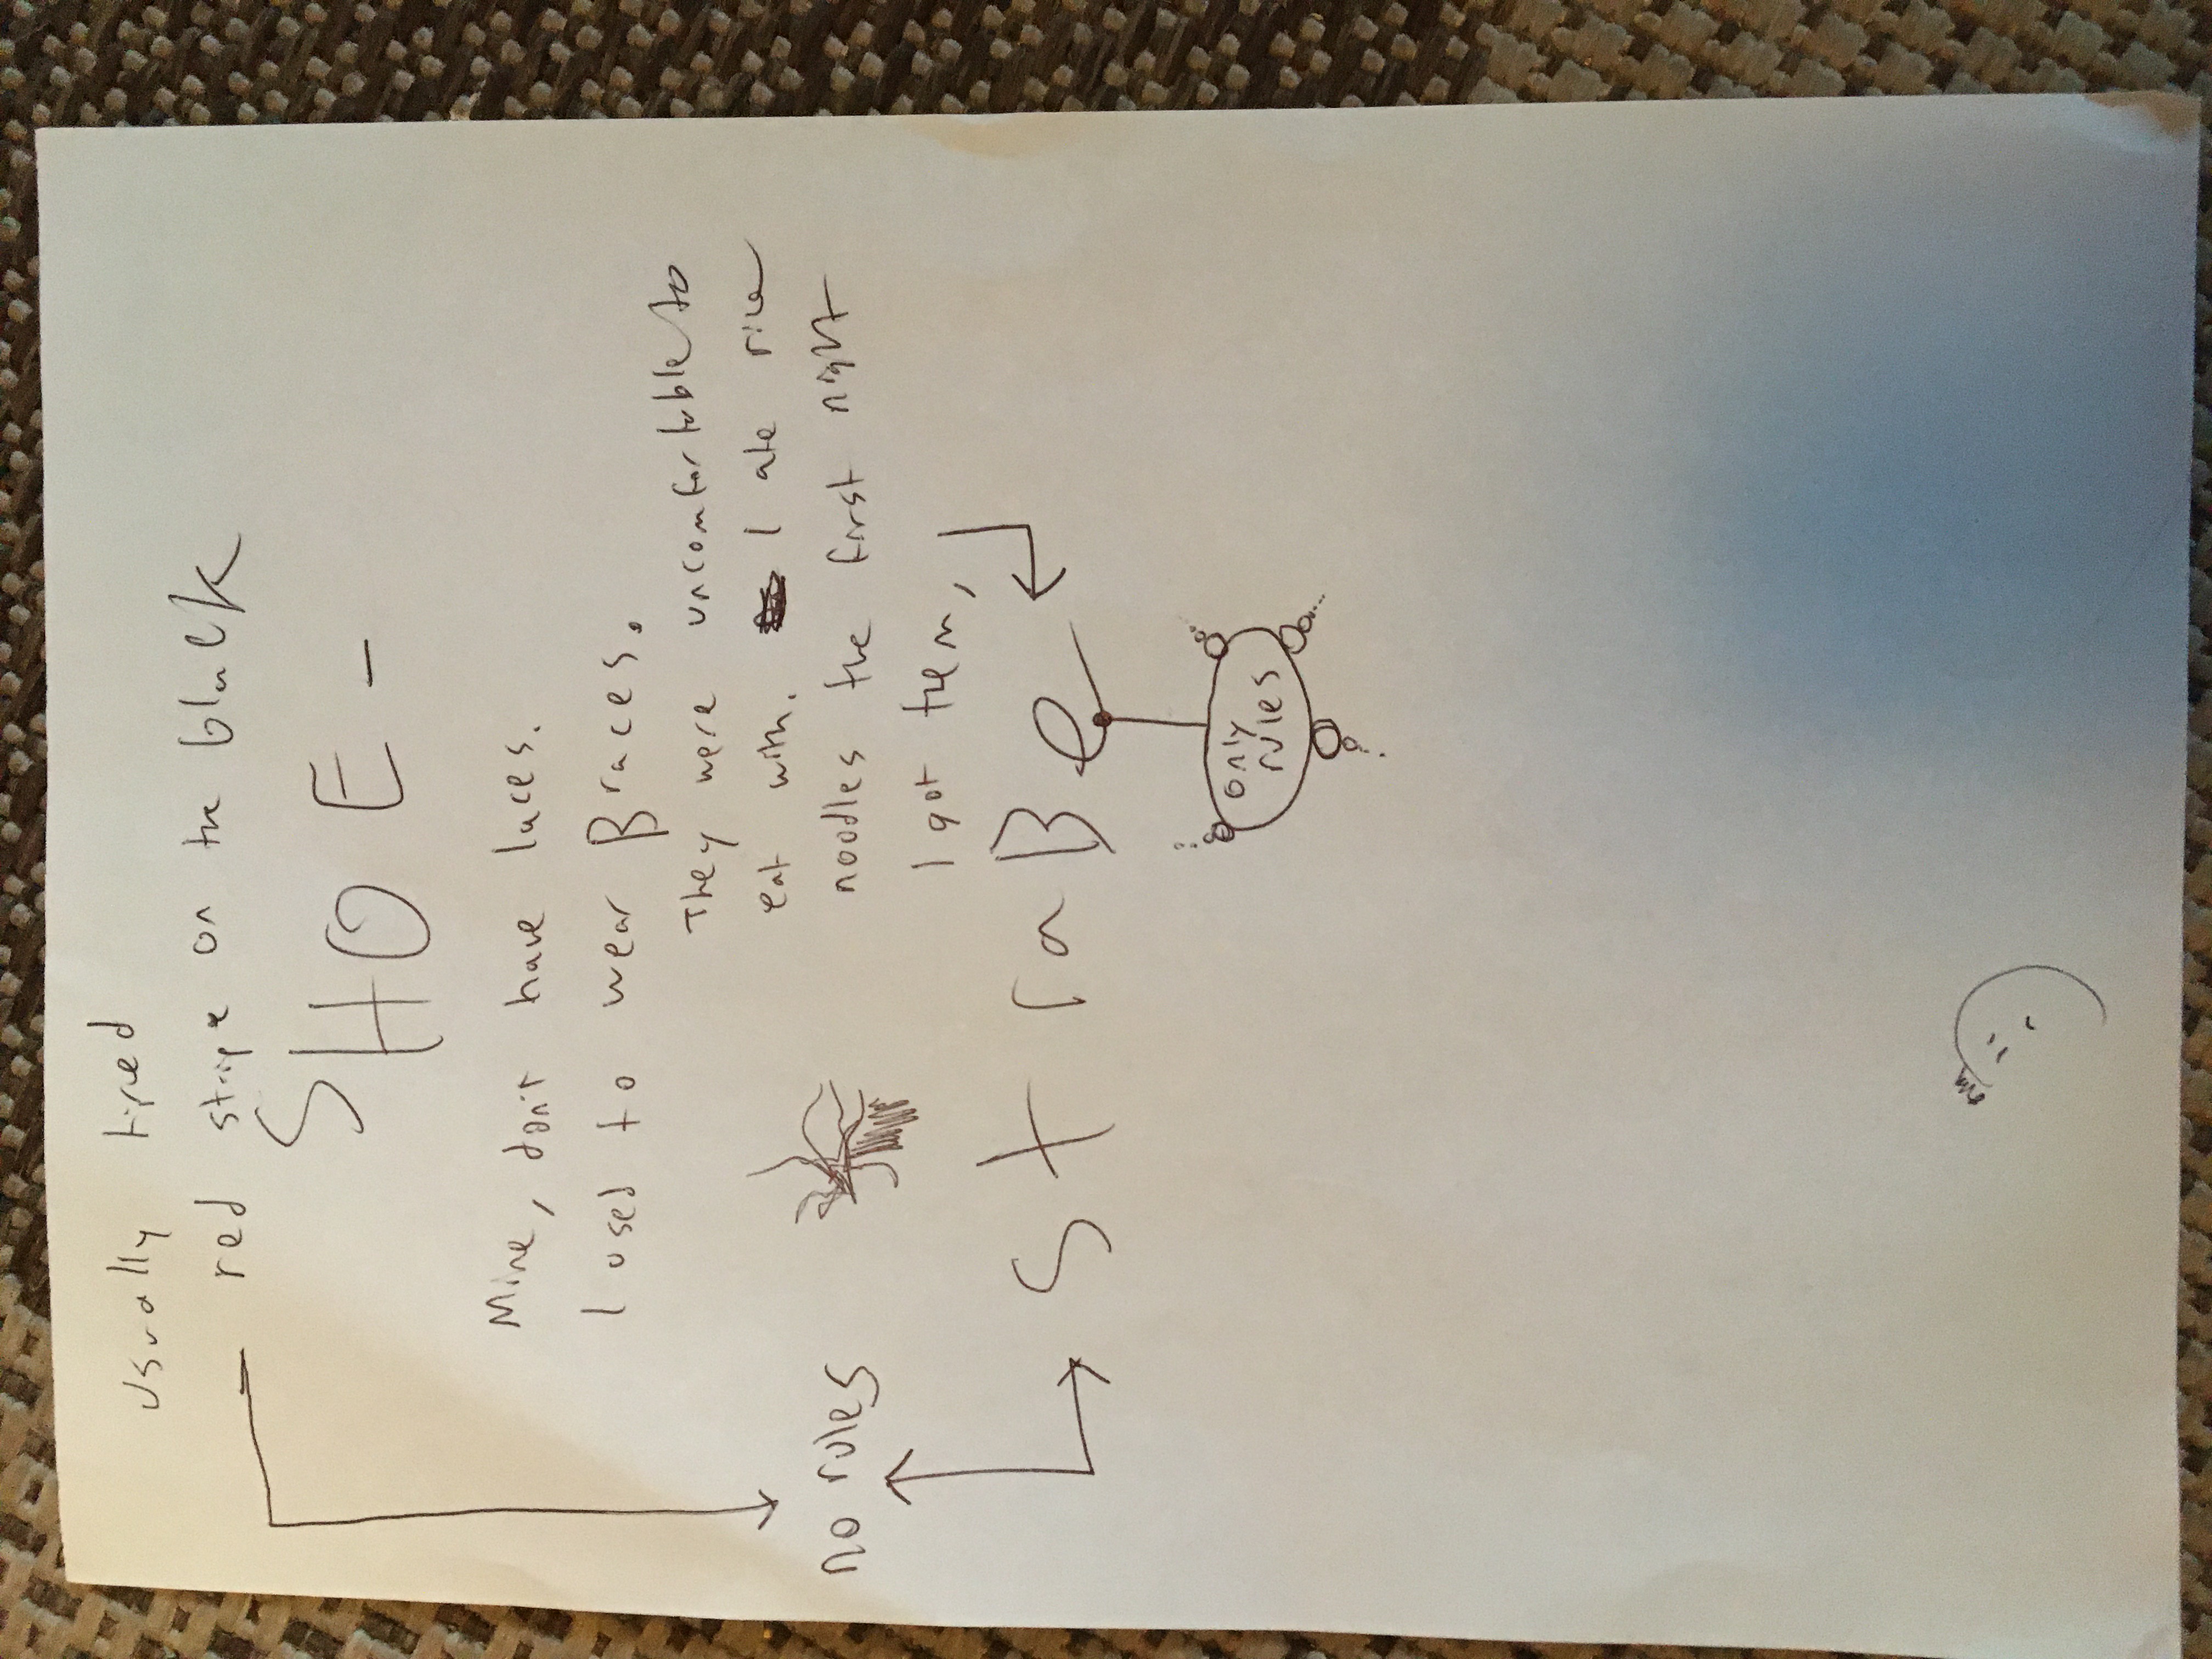 usually tired
red stripe on the black
SHOE -
Mine, don't have laces.
I used to wear Braces.
They were uncomfortable to
eat with. I ate rice
noodles the first night
I got them,
no rules
straBe
only
rules